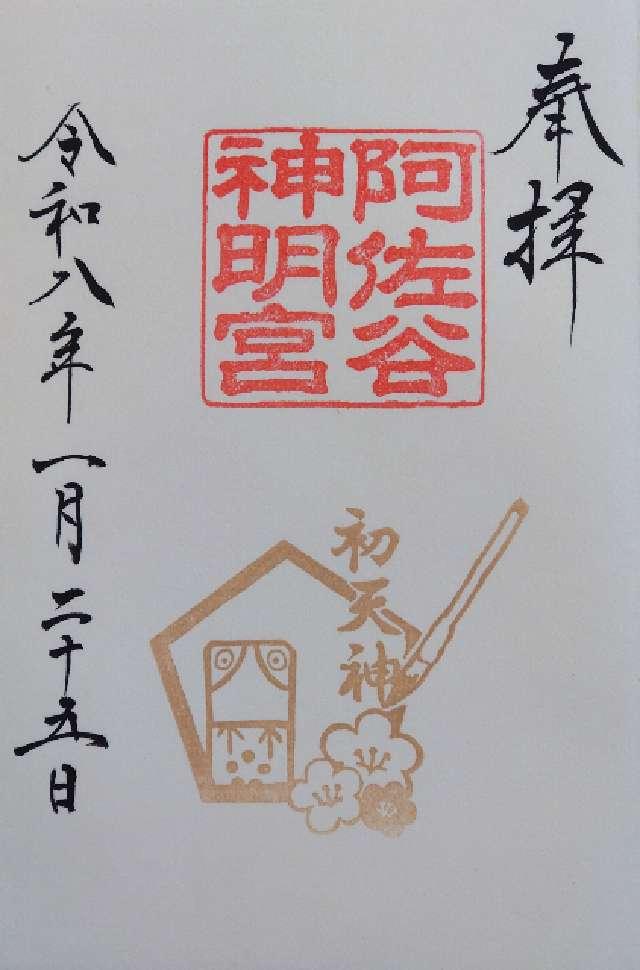 奉拝
阿佐谷
神明宮
初天神
令和八年一月二十五日